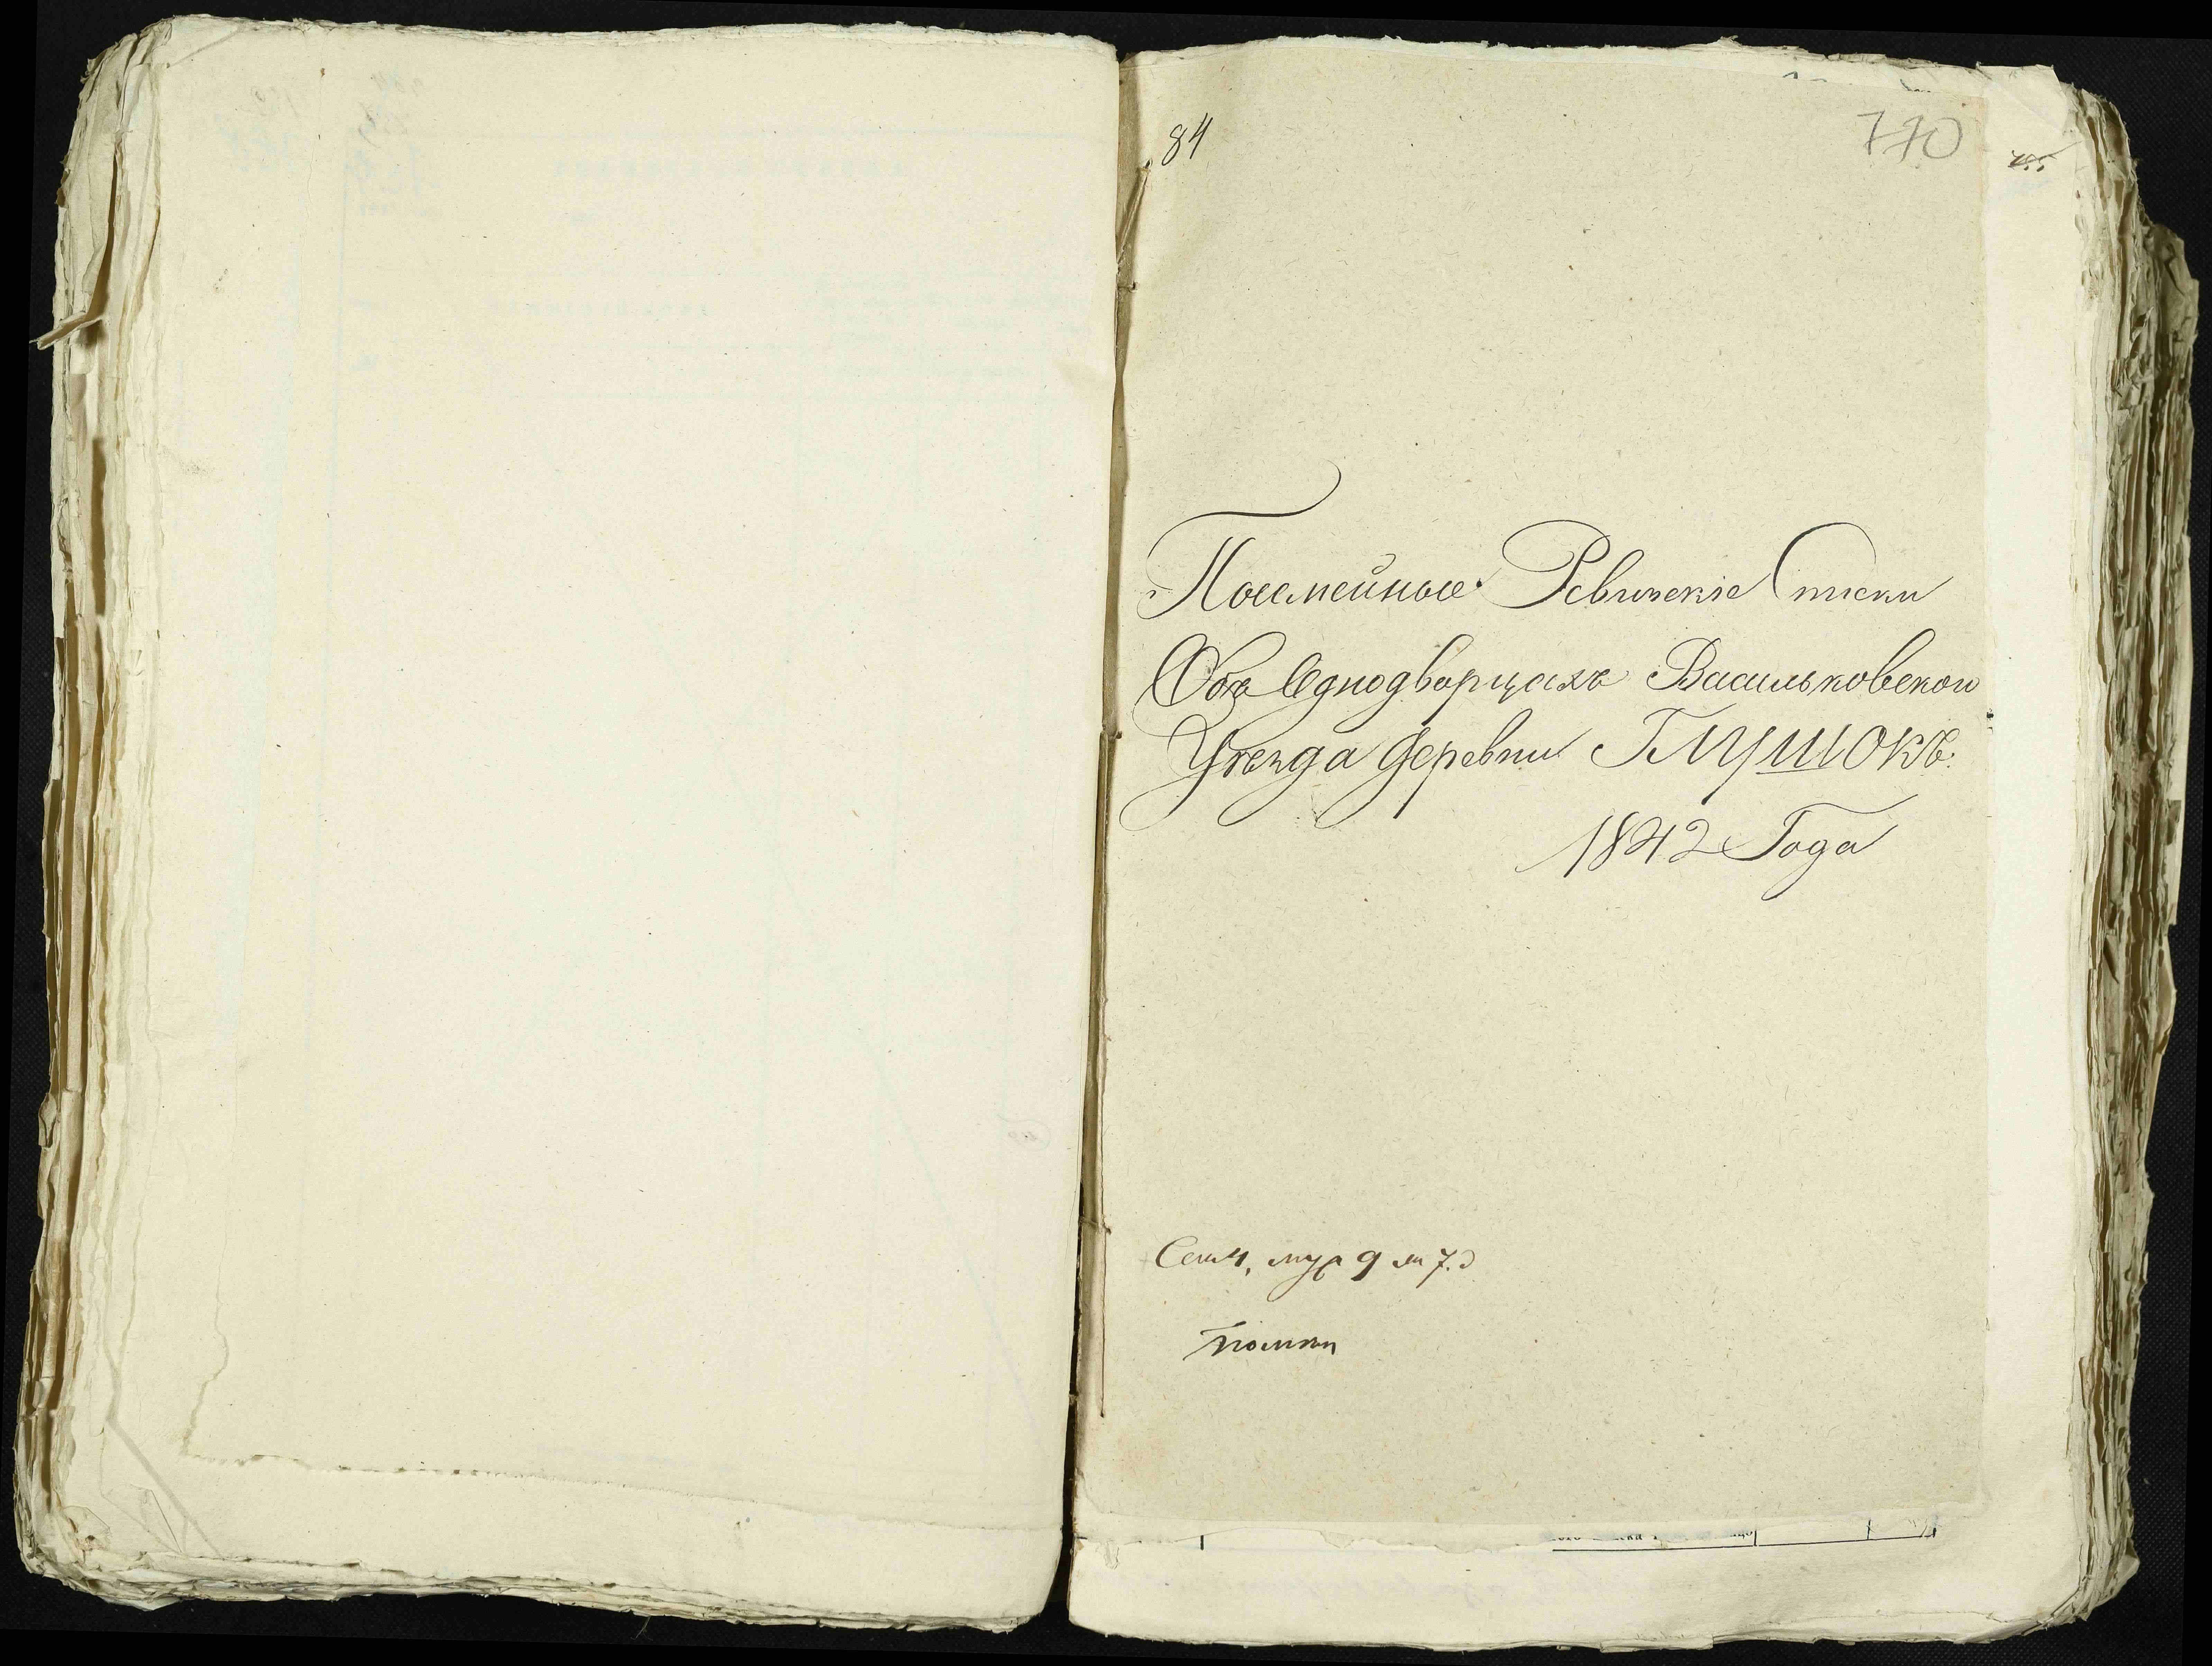 84
770
Посемейные Ревизскіе Списки
Объ Однодворцахъ Васильковского
Уезда деревни Глушокъ.
1842 Года
Сем 4, муж 9 ж 7.